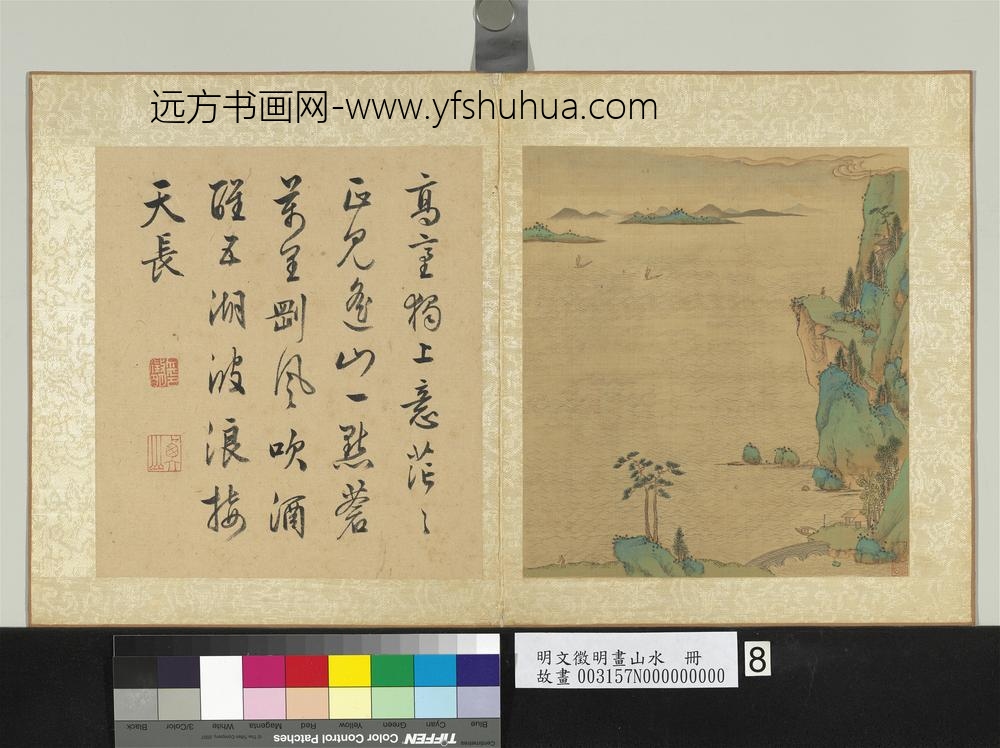 远方书画网-www.yfshuhua.com
高臺獨上意茫〻
正見遙山一點蒼
萬里剛風吹酒
醒五湖波浪接
天長
明文徵明畫山水 冊
故畫 003157N000000000
8
Black
3/Color
White
Magenta
Red
Yellow
Green
Cyan
Blue
TIFFEN Color Control Patches
Centimetres